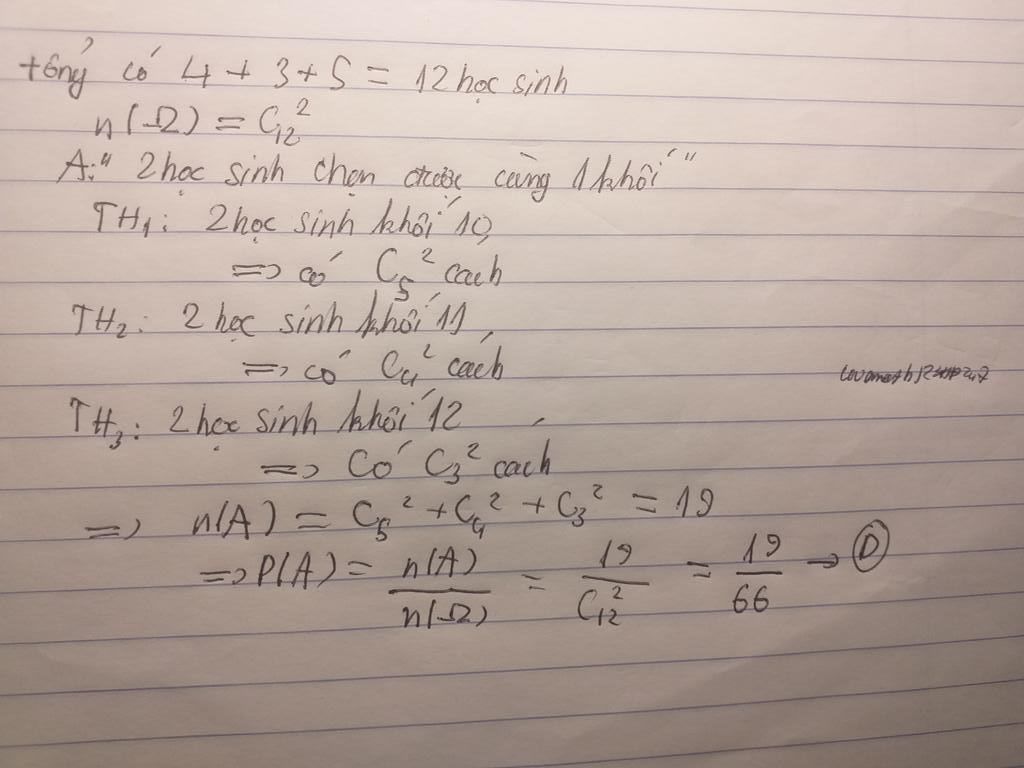 tổng có 4 + 3 + 5 = 12 học sinh
n(Ω) = C₁₂²
A: " 2 học sinh chọn được cùng 1 khối "
TH₁: 2 học sinh khối 10
=> có C₅² cách
TH₂: 2 học sinh khối 11
=> có C₄² cách
TH₃: 2 học sinh khối 12
=> Có C₃² cách
=> n(A) = C₅² + C₄² + C₃² = 19
=> P(A) = n(A)/n(Ω) = 19/C₁₂² = 19/66 → D